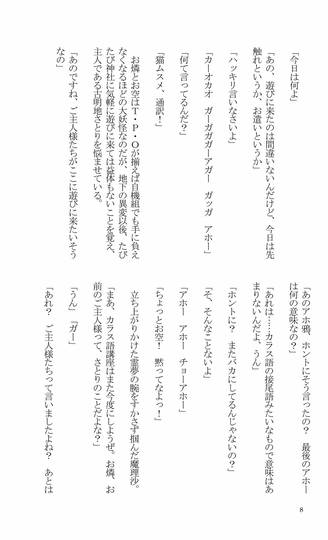 「今日は何よ」
「あの、遊びに来たのは間違いないんだけど、今日は先
触れというか、お遣いというか」
「ハッキリ言いなさいよ」
「カーオカオ　ガーガガガーアガー　ガッガ　アホー」
「何て言ってるんだ？」
「猫ムスメ、通訳！」
　お燐とお空はＴ・Ｐ・Ｏが揃えば自機組でも手に負え
なくなるほどの大妖怪なのだが、地下の異変以後、たび
たび神社に気軽に遊びに来ては益体もないことを覚え、
主人である古明地さとりを悩ませている。
「あのですね、ご主人様たちがここに遊びに来たいそう
なの」
「あのアホ鴉、ホントにそう言ったの？　最後のアホー
は何の意味なの？」
「あれは……カラス語の接尾語みたいなもので意味はあ
まりないんだよ、うん」
「ホントに？　またバカにしてるんじゃないの？」
「そ、そんなことないよ」
「アホー　アホー　チョーアホー」
「ちょっとお空！　黙ってなよっ！」
　立ち上がりかけた霊夢の腕をすかさず掴んだ魔理沙。
「まあ、カラス語講座はまた今度にしようぜ。お燐、お
前のご主人様って、さとりのことだよな？」
「うん」「ガー」
「あれ？　ご主人様たちって言いましたよね？　あとは
8